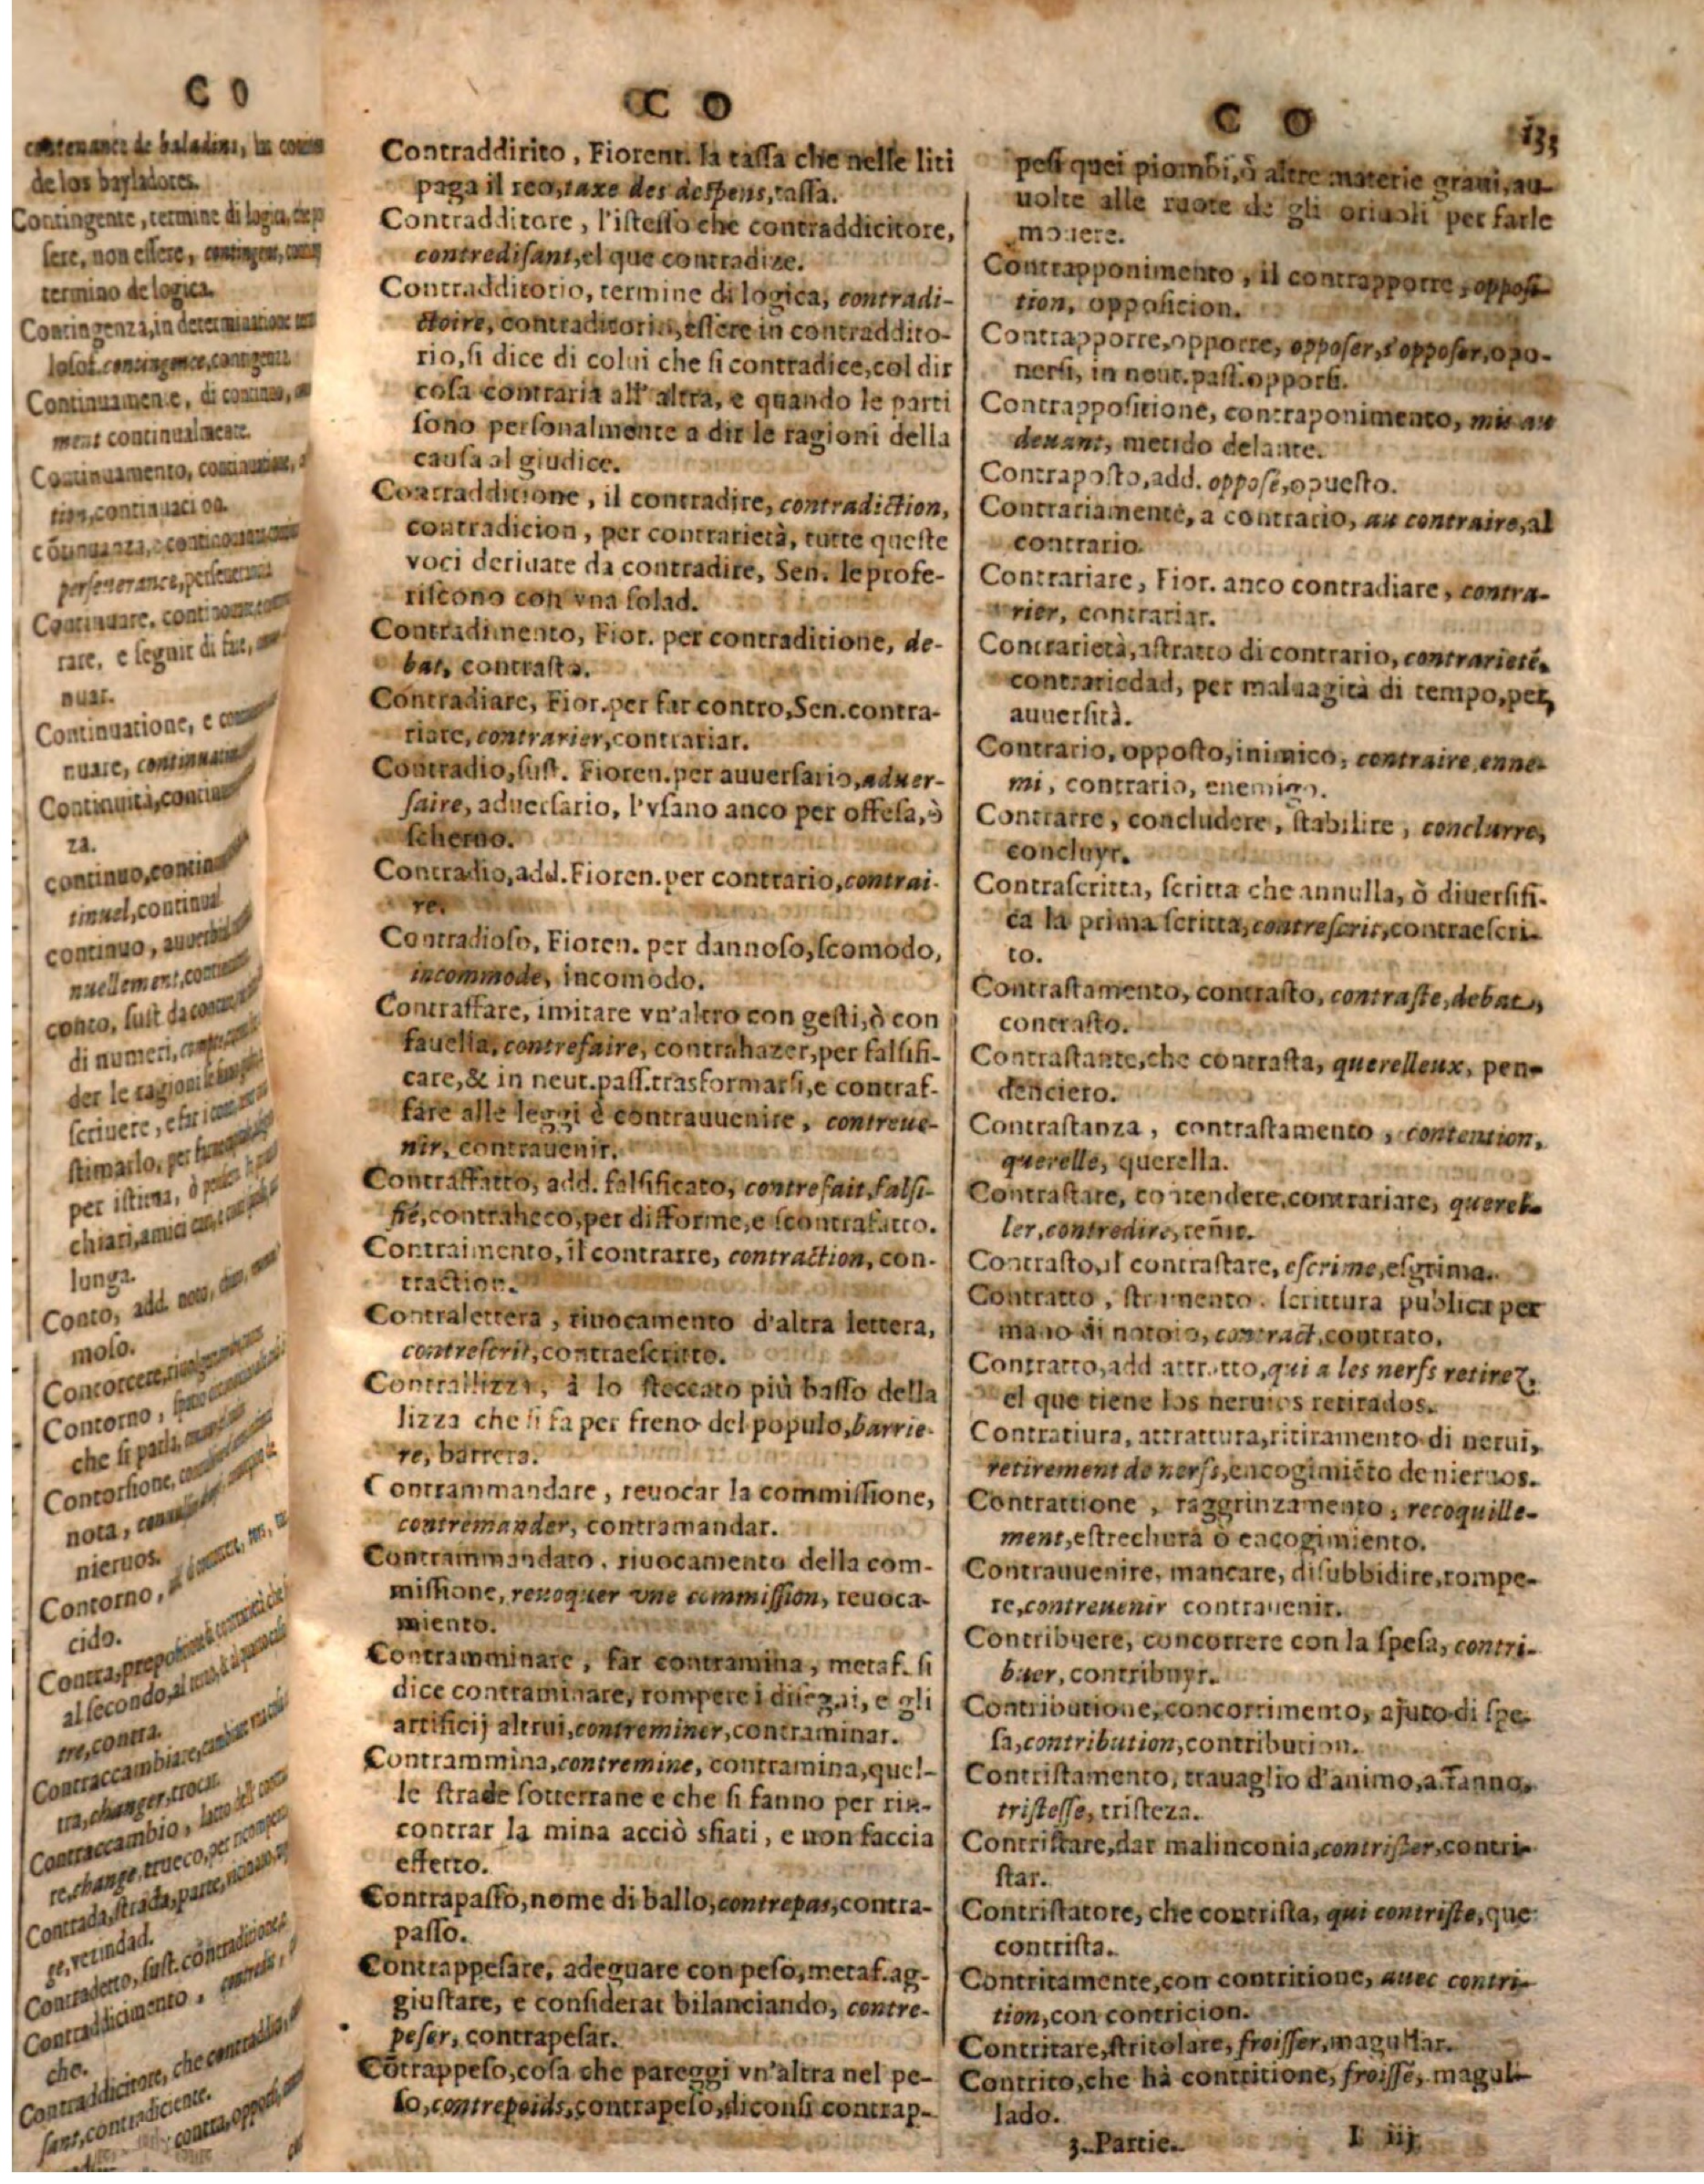 C O
contenance de baladins, la
de los bayladores.
Contingente, termine di logica,
sere, non essere,
termino de logica.
Contingenza, in determinatione
contingence, contingenza
di continuo,
ment continualmente.
Continuamento,
tion, continuacion.
perseuerance,
Continuare,
rare, e seguir di far,
nuar.
Continuatione, e
nuare,
Continuità,
za.
continuo,
tinuel, continual
continuo,
nuellement,
conto, sust. da
di numeri,
der le ragioni
scriuere, e far i
stimarlo, per
per istima, ò
chiari, amici
lunga.
Conto, add. noto,
moso.
Contorcere,
Contorno,
che si parla,
Contorsione,
nota,
nieruos.
Contorno,
cido.
Contra, prepositione
al secondo, al
tre, contra.
Contraccambiare,
tra, changer, trocar.
Contraccambio,
re, change, trueco, per
Contrada, strada, parte,
ge, vezindad.
Contradetto, sust. contradicione
Contraddicimento,
che.
Contraddicitore, che
sant, contradiciente.
contra,
C O
Contraddirito, Fiorent. la tassa che nelle liti
paga il reo, taxe des despens, tassa.
Contradditore, l'istesso che contraddicitore,
contredisant, el que contradize.
Contradditorio, termine di logica, contradi-
ctoire, contraditorio, essere in contraddito-
rio, si dice di colui che si contradice, col dir
cosa contraria all' altra, e quando le parti
sono personalmente a dir le ragioni della
causa al giudice.
Contradditione, il contradire, contradiction,
contradicion, per contrarietà, tutte queste
voci deriuate da contradire, Sen. le profe-
riscono con vna sola d.
Contradimento, Fior. per contraditione, de-
bat, contrasta.
Contradiare, Fior. per far contro, Sen. contra-
riare, contrarier, contrariar.
Contradio, sust. Fioren. per auuersario, aduer-
saire, aduersario, l'vsano anco per offesa, ò
scherno.
Contradio, add. Fioren. per contrario, contrai-
re.
Contradioso, Fioren. per dannoso, scomodo,
incommode, incomodo.
Contraffare, imitare vn'altro con gesti, ò con
fauella, contrefaire, contrahazer, per falsifi-
care, & in neut. pass. trasformarsi, e contraf-
fare alle leggi è contrauuenire, contreue-
nir, contrauenir.
Contraffatto, add. falsificato, contrefait, falsi-
fié, contraheco, per difforme, e scontrafatto.
Contraimento, il contrarre, contraction, con-
traction.
Contralettera, riuocamento d'altra lettera,
contrescrit, contraescritto.
Contrallizza, à lo steccato più basso della
lizza che si fa per freno del populo, barrie-
re, barrera.
Contrammandare, reuocar la commissione,
contremander, contramandar.
Contrammandato, riuocamento della com-
missione, reuoquer vne commission, reuoca-
miento.
Contramminare, far contramina, metaf. si
dice contraminare, rompere i disegni, e gli
artificij altrui, contreminer, contraminar.
Contrammina, contremine, contramina, quel-
le strade sotterrane e che si fanno per rin-
contrar la mina acciò sfiati, e non faccia
effetto.
Contrapasso, nome di ballo, contrepas, contra-
passo.
Contrappesare, adeguare con peso, metaf. ag-
giustare, e considerar bilanciando, contre-
peser, contrapesar.
Cōtrappeso, cosa che pareggi vn'altra nel pe-
so, contrepoids, contrapeso, diconsi contrap-
C O 133
pesi quei piombi, ò altre materie graui, au-
uolte alle ruote de gli oriuoli per farle
mouere.
Contrapponimento, il contrapporre, opposi-
tion, oposicion.
Contrapporre, opporre, opposer, s'opposer, opo-
nersi, in neut. pass. opporsi.
Contrappositione, contraponimento, mis au
deuant, metido delante.
Contraposto, add. opposé, opuesto.
Contrariamente, a contrario, au contraire, al
contrario.
Contrariare, Fior. anco contradiare, contra-
rier, contrariar.
Contrarietà, astratto di contrario, contrarieté,
contrariedad, per maluagità di tempo, per
auuersità.
Contrario, opposto, inimico, contraire, enne-
mi, contrario, enemigo.
Contrarre, concludere, stabilire, conclurre,
concluyr.
Contrascritta, scritta che annulla, ò diuersifi-
ca la prima scritta, contrescrit, contraescri-
to.
Contrastamento, contrasto, contraste, debat,
contrasto.
Contrastante, che contrasta, querelleux, pen-
denciero.
Contrastanza, contrastamento, contention,
querelle, querella.
Contrastare, contendere, contrariare, querel-
ler, contredire, reñir.
Contrasto, il contrastare, escrime, esgrima.
Contratto, strumento. scrittura publica per
mano di notoio, contract, contrato.
Contratto, add attratto, qui a les nerfs retirez,
el que tiene los neruios retirados.
Contratiura, attrattura, ritiramento di nerui,
retirement de nerfs, encogimiēto de nieruos.
Contrattione, raggrinzamento, recoquille-
ment, estrechura ò encogimiento.
Contrauuenire, mancare, disubbidire, rompe-
re, contreuenir contrauenir.
Contribuere, concorrere con la spesa, contri-
buer, contribuyr.
Contributione, concorrimento, ajuto di spe-
sa, contribution, contribucion.
Contristamento, trauaglio d'animo, affanno,
tristesse, tristeza.
Contristare, dar malinconia, contrister, contri-
star.
Contristatore, che contrista, qui contriste, que
contrista.
Contritamente, con contritione, auec contri-
tion, con contricion.
Contritare, stritolare, froisser, magullar.
Contrito, che hà contritione, froissé, magul-
lado.
3. Partie. I iij